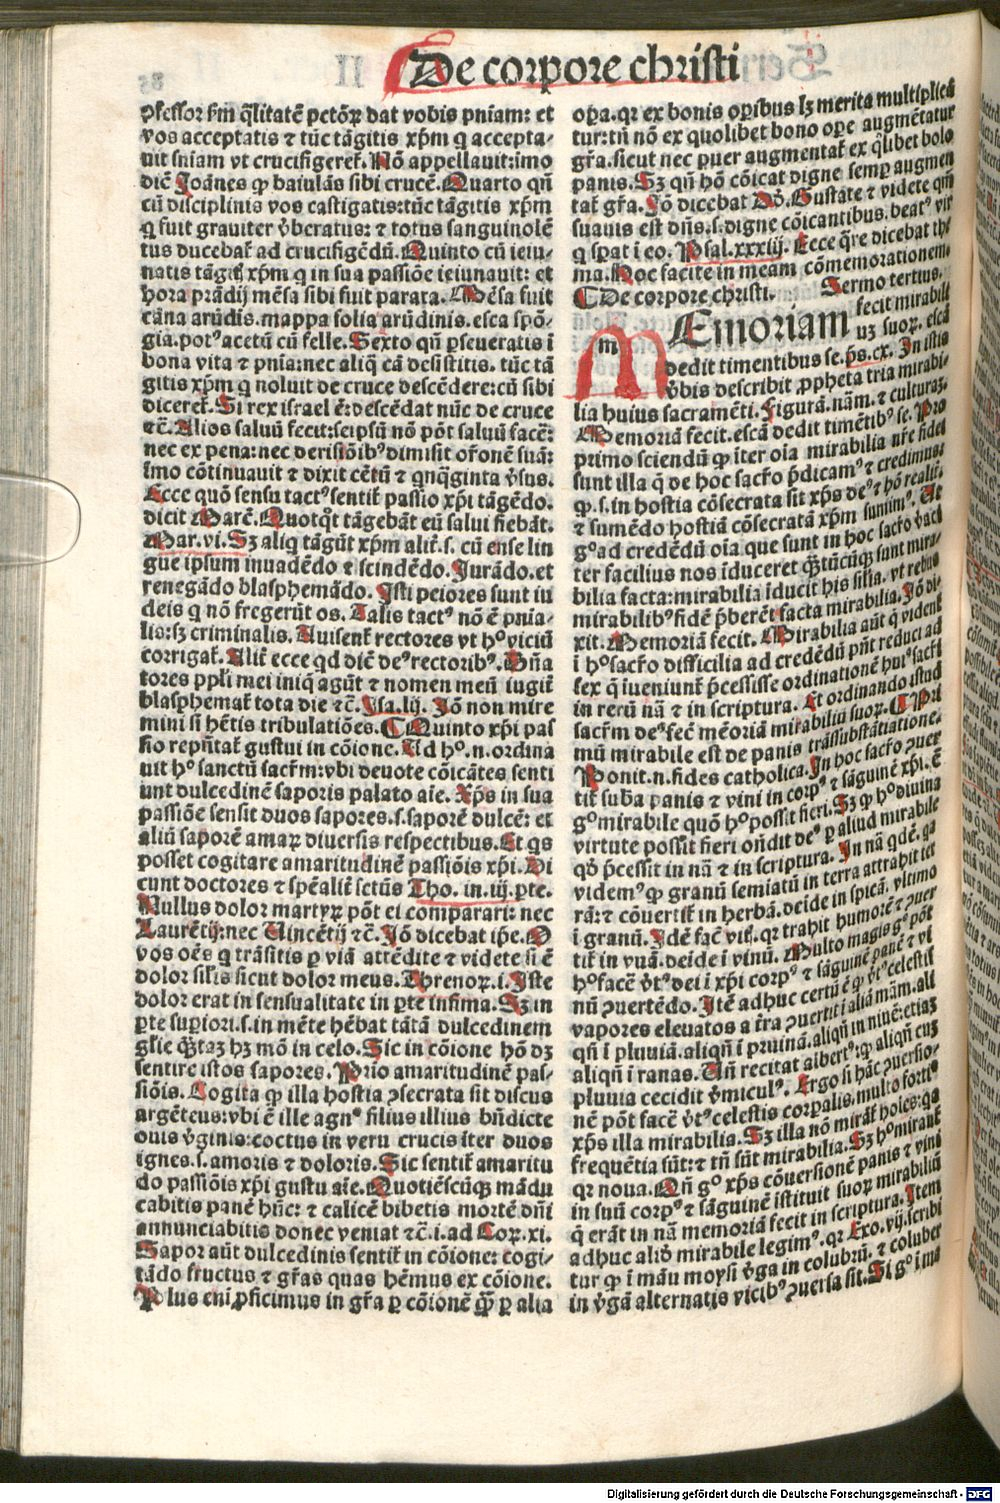 De corpore christi
ꝓfessor ẜm q̄litatē petōꝝ dat vobis pniam: et
vos acceptatis ⁊ tūc tāgitis xp̄m q accepta-
uit sniam vt crucifigeret̄. Nō appellauit: imo
dic̄ Joānes ꝙ baiulās sibi crucē. Quarto qn̄
cū disciplinis vos castigatis: tūc tāgitis xp̄m
q fuit grauiter v̄beratus: ⁊ totus sanguinolē
tus ducebat̄ ad crucifigēdū. Quinto cū ieiu-
natis tāgit̄ xp̄m q in sua passiōe ieiunauit: et
hora prādij mēsa sibi fuit parata. Mēsa fuit
cāna arūdis. mappa folia arūdinis. esca spō-
gia. potꝰ acetū cū felle. Sexto qn̄ ꝑseueratis ī
bona vita ⁊ pnia: nec aliq̄ cā desistitis. tūc tā
gitis xp̄m q noluit de cruce descēdere: cū sibi
diceret̄. Si rex israel ē: descēdat nūc de cruce
⁊c̄. Alios saluū fecit: seipsū nō pōt saluū facē:
nec ex pena: nec derisiōibꝰ dimisit or̄onē suā:
īmo cōtinuauit ⁊ dixit cētū ⁊ qn̄q̄ginta v̄sus.
Ecce quō sensu tactꝰ sentit̄ passio xp̄i tāgēdo.
dicit Marc̄. Quotq̄t tāgebāt eū salui fiebāt.
Mar. vi. Sꝫ aliq tāgūt xp̄m alit̄. s. cū ense lin
gue ipsum inuadēdo ⁊ scindēdo. Jurādo. et
renegādo blasphemādo. Isti peiores sunt iu
deis q nō fregerūt os. Talis tactꝰ nō ē pnia-
lis: sꝫ criminalis. Auisent̄ rectores vt hꝰ viciū
corrigat̄. Alit̄ ecce qd dic̄ deꝰ rectoribꝰ. Dn̄a
tores ppl̄i mei iniq̄ agūt ⁊ nomen meū iugit̄
blasphemat̄ tota die ⁊c̄. Isa. lij. Iō non mire
mini si hētis tribulatiōes. ¶ Quinto xp̄i pas
sio repn̄tat̄ gustui in cōione. Ad hꝰ. n. ordina
uit hꝰ sanctū sacr̄m: vbi deuote cōicātes senti
unt dulcedinē saporis palato aīe. Xp̄s in sua
passiōe sensit duos sapores. s. saporē dulcē: et
aliū saporē amaꝝ diuersis respectibus. Et qs
posset cogitare amaritudinē passiōis xp̄i. Di
cunt doctores ⁊ sp̄ealit̄ sctūs Tho. in. iij. pte.
Nullus dolor martyꝝ pōt ei comparari: nec
Laurētij: nec Vincētij ⁊c̄. Iō dicebat ip̄e. O
vos oēs q trāsitis ꝑ viā attēdite ⁊ videte si ē
dolor sil̄is sicut dolor meus. Threnoꝝ. i. Iste
dolor erat in sensualitate in ꝑte infima. Sꝫ in
ꝑte suꝑiori. s. in mēte hēbat tātā dulcedinem
gl̄ie q̄ꝫtaꝫ hꝫ mō in celo. Sic in cōione hō dꝫ
sentire istos sapores. Prīo amaritudinē pas-
siōis. Cogita ꝙ illa hostia ɔsecrata sit discus
argēteus: vbi ē ille agnꝰ filius illius bn̄dicte
ouis v̄ginis: coctus in veru crucis īter duos
ignes. s. amoris ⁊ doloris. Sic sentit̄ amaritu
do passiōis xp̄i gustu aīe. Quotiēscūqꝫ mādu
cabitis panē hūc: ⁊ calicē bibetis mortē dn̄i
annunciabitis donec veniat ⁊c̄. i. ad Coꝝ. xi.
Sapor aūt dulcedinis sentit̄ in cōione: cogi-
tādo fructus ⁊ gr̄as quas hēmus ex cōione.
Plus eni ꝓficimus in gr̄a ꝑ cōionē q̄ꝫ ꝑ alia
oꝑa. qr ex bonis oꝑibus lꝫ merita multiplicē
tur: tn̄ nō ex quolibet bono oꝑe augmētatur
gr̄a. sicut nec puer augmentat̄ ex q̄libet bolo
panis. Sꝫ qn̄ hō cōicat digne semꝑ augmen
tat̄ gr̄a. Iō dicebat Dō. Gustate ⁊ videte qm̄
suauis est dn̄s. s. digne cōicantibus. beatꝰ vir
q sꝑat i eo. Psal. xxxiij. Ecce q̄re dicebat the
ma. Hoc facite in meam cōmemorationem.
¶ De corpore christi. Sermo tertius.
m MEmoriam fecit mirabili
uꝫ suoꝝ. escā
dedit timentibus se. ps. cx. In istis
v̄bis describit ꝓpheta tria mirabi-
lia huius sacramēti. Figurā. nām. ⁊ culturaꝫ.
Memoriā fecit. escā dedit timētibꝰ se. Pro
primo sciendū ꝙ iter oīa mirabilia nr̄e fidei
sunt illa q̄ de hoc sacr̄o p̄dicamꝰ ⁊ credimus
ꝙ. s. in hostia cōsecrata sit xp̄s deꝰ ⁊ hō realit̄.
⁊ sumēdo hostiā cōsecratā xp̄m sumimꝰ. Ut
gꝰ ad credēdū oīa que sunt in hoc sacr̄o dyacl
ter facilius nos iduceret q̄ꝫtūcūqꝫ sunt mira-
bilia facta: mirabilia iducit his filia. vt rebus
mirabilibꝰ fidē p̄berēt facta mirabilia. Iō di-
xit. Memoriā fecit. Mirabilia aūt q̄ vident̄
i hꝰ sacr̄o difficilia ad credēdū pn̄t reduci ad
sex q̄ iueniunt̄ p̄cessisse ordinationē huiꝰ sacr̄i
in rerū nā ⁊ in scriptura. Et ordinando istud
sacr̄m deꝰ fec̄ mēoriā mirabiliū suoꝝ. ¶ Pri
mū mirabile est de panis trāssubstātiatione.
Ponit. n. fides catholica. In hoc sacr̄o ɔuer
tit̄ suba panis ⁊ vini in corpꝰ ⁊ sāguinē xp̄i. Ē
gꝰ mirabile quō hꝰ possit fieri. Sꝫ ꝙ hꝰ diuina
virtute possit fieri on̄dit deꝰ ꝑ aliud mirabile
qd̄ p̄cessit in nā ⁊ in scriptura. In nā qdē. qa
videmꝰ ꝙ granū semiatū in terra attrahit ter
rā: ⁊ cōuertit̄ in herbā. deide in spicā. vltimo
i granū. Idē fac̄ vit̄. qr trahit humorē ⁊ ɔuer
tit̄ in vuā. deide i vinū. Multo magis gꝰ pōt
hꝰ facē v̄tꝰ dei i xp̄i corpꝰ ⁊ sāguinē panē ⁊ vi
nū ɔuertēdo. Itē adhuc certū ē ꝙ v̄tꝰ celestis
vapores eleuatos a t̄ra ɔuertit i aliā mām. ali
qn̄ i pluuiā. aliqn̄ i pruinā. aliqn̄ in niuē: etiaꝫ
aliqn̄ i ranas. Un̄ recitat albertꝰ: ꝙ aliqn̄ cuꝫ
pluuia cecidit v̄miculꝰ. Ergo si hāc ɔuersio-
nē pōt facē v̄tꝰ celestis corꝑalis. multo fortiꝰ
xp̄s illa mirabilia. Sꝫ illa nō mirāt̄ hoīes: qa
frequētia sūt: ⁊ tn̄ sūt mirabilia. Sꝫ hꝰ mirant̄
qr noua. Qn̄ gꝰ xp̄s cōuersionē panis ⁊ vini
in suū corpꝰ ⁊ sāguinē istituit suoꝝ mirabiliū
q̄ erāt in nā memoriā fecit in scriptura. Item
adhuc aliō mirabile legimꝰ. qr Exo. vij. scribi
tur ꝙ i māu moysi v̄ga in colubrū. ⁊ coluber
in v̄gā alternatis vicibꝰ ɔuersa sit. Si gꝰ i ma
Digitalisierung gefördert durch die Deutsche Forschungsgemeinschaft - DFG